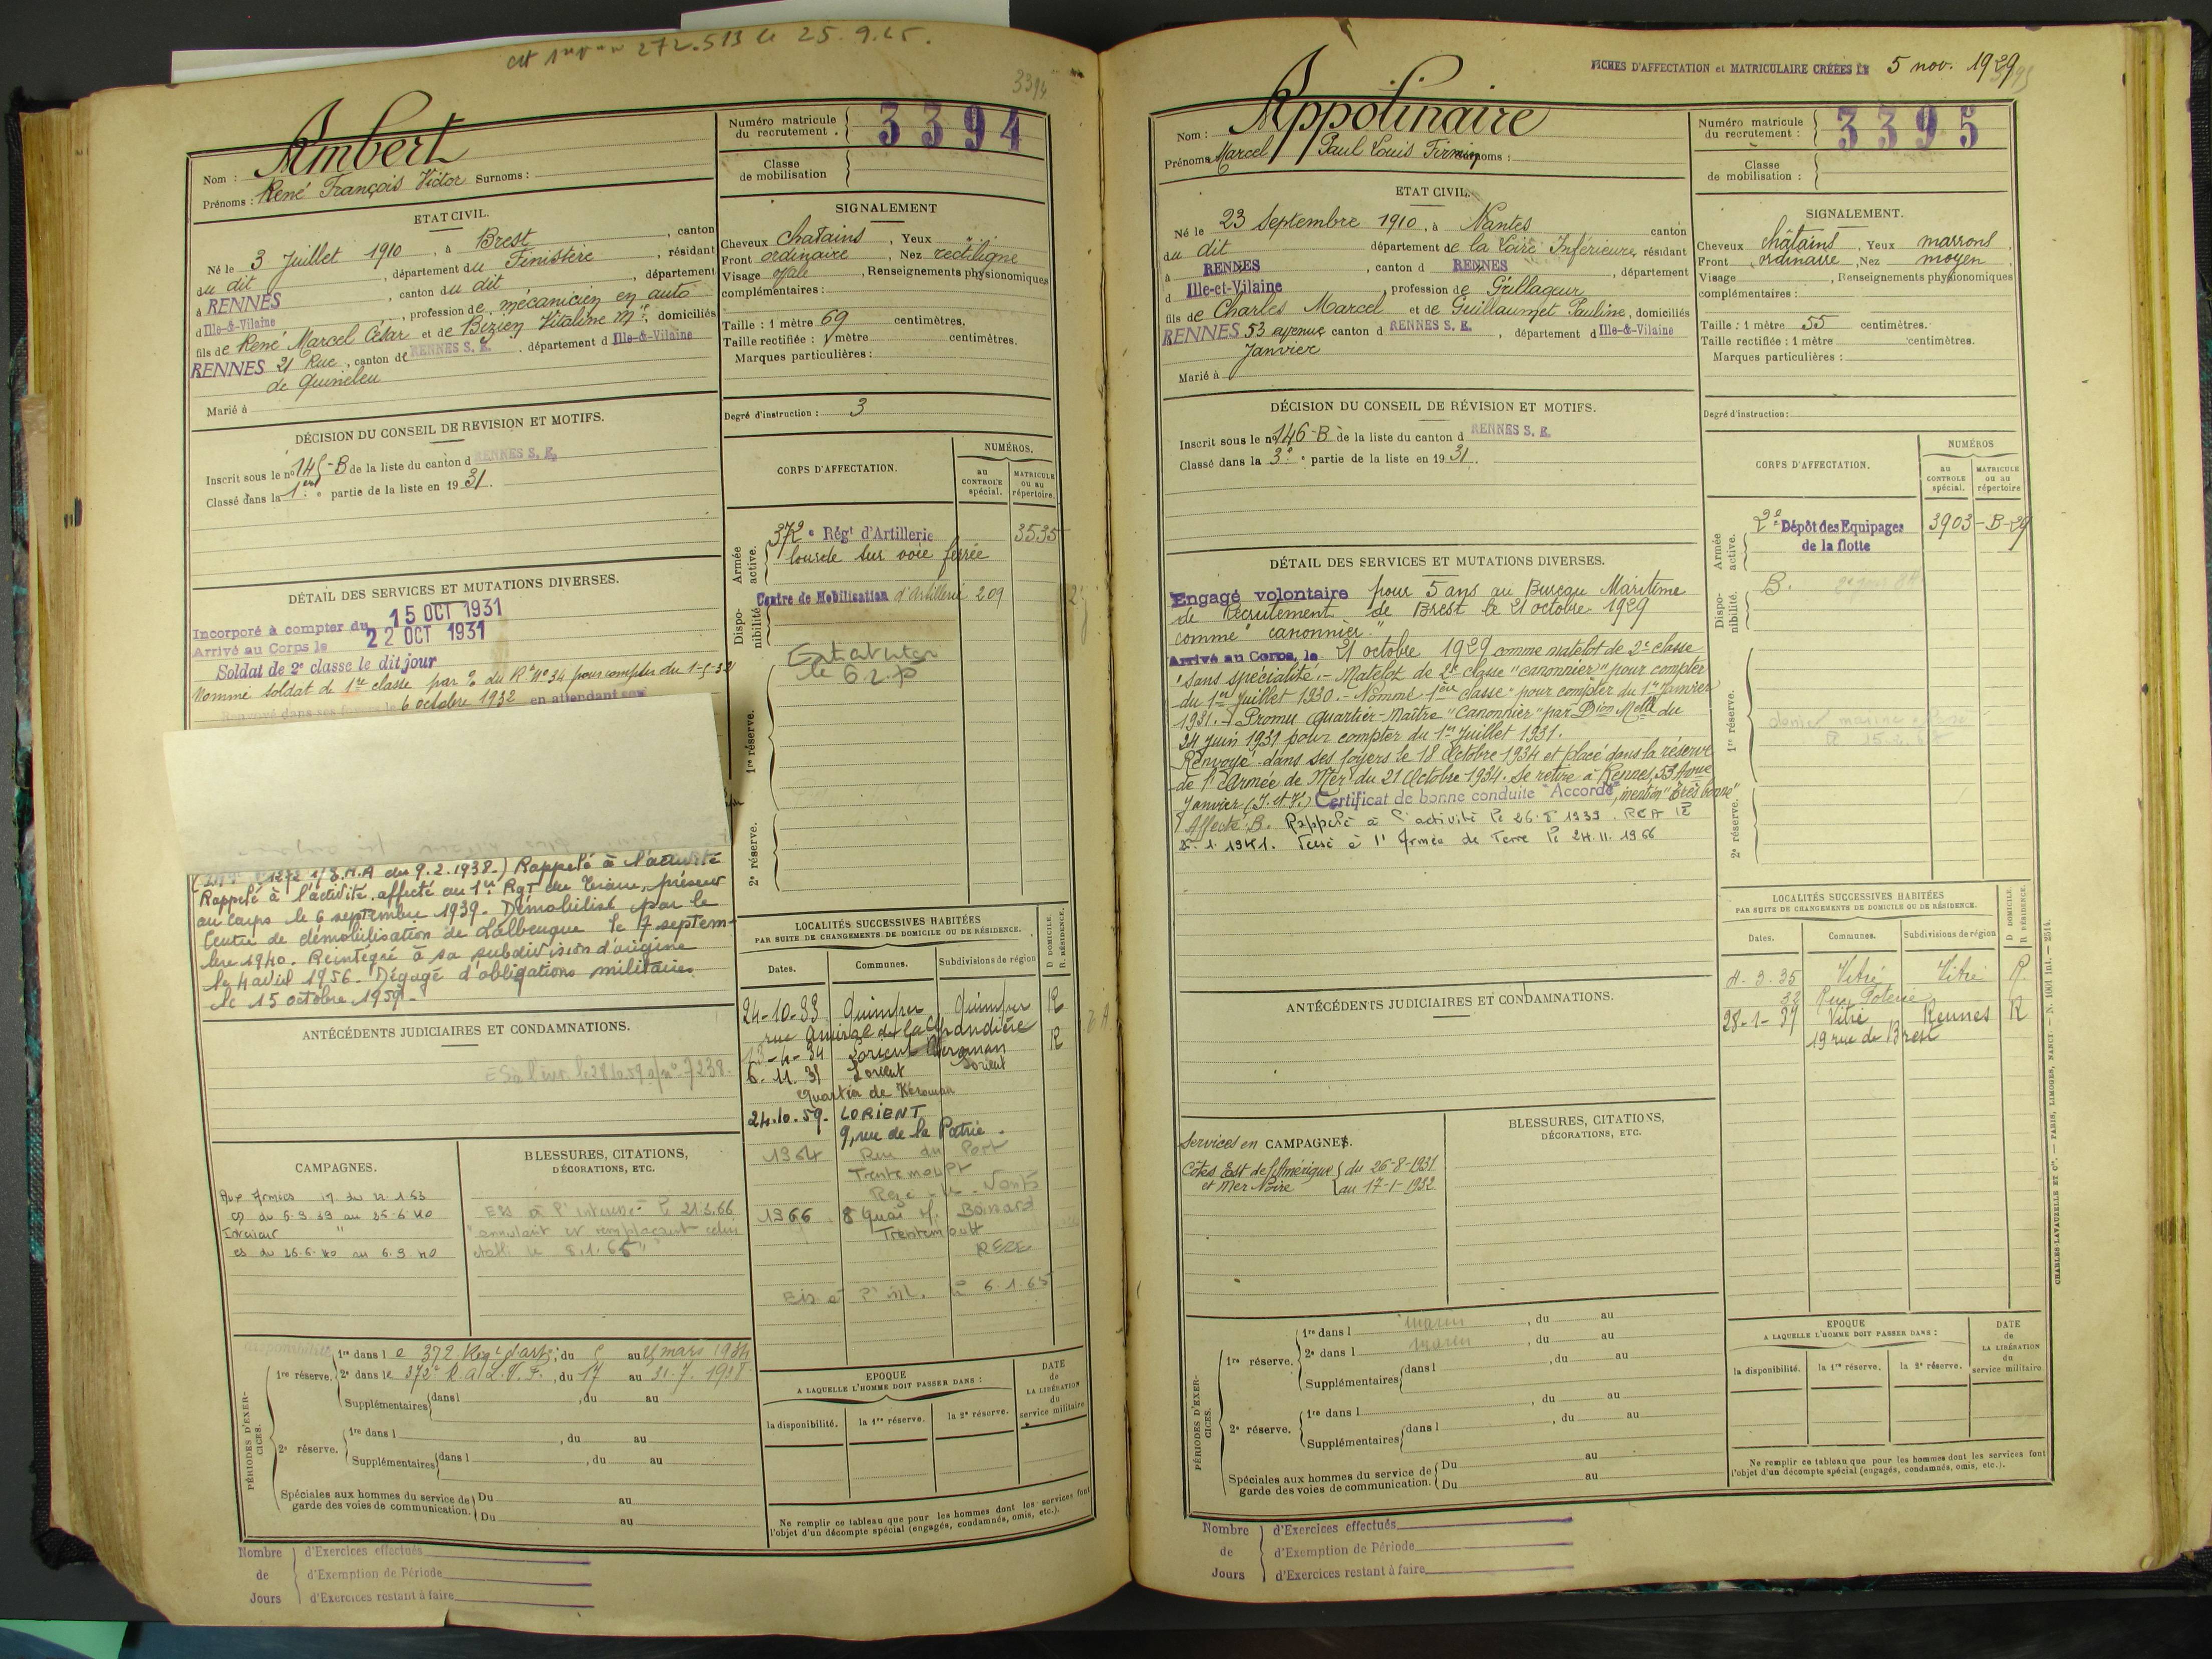 272.513 le 25.9.65.
3394
Nom : Ambert
Prénoms : René François Victor Surnoms :
Numéro matricule du recrutement . 3394
Classe de mobilisation
ETAT CIVIL.
Né le 3 Juillet 1910, à Brest, canton
du dit, département du Finistère, résidant
à RENNES, canton du dit, département
d Ille-&-Vilaine, profession de mécanicien en auto
fils de René Marcel César et de Bizien Vitaline Mie, domiciliés
RENNES 21 Rue, canton de RENNES S. E. département d Ille-&-Vilaine
de Quineleu
Marié à
SIGNALEMENT
Cheveux chatains, Yeux
Front ordinaire, Nez rectiligne
Visage ovale, Renseignements physionomiques
complémentaires :
Taille : 1 mètre 69 centimètres.
Taille rectifiée : 1 mètre centimètres.
Marques particulières :
Degré d'instruction : 3
DÉCISION DU CONSEIL DE REVISION ET MOTIFS.
Inscrit sous le no 145-B de la liste du canton d RENNES S. E.
Classé dans la 1ère partie de la liste en 1931.
CORPS D'AFFECTATION.
NUMÉROS.
au CONTROLE spécial.
MATRICULE ou au répertoire.
Armée active.
372e Régt d'Artillerie 3535
lourde sur voie ferrée
Disponibilité.
Centre de Mobilisation d'Artillerie 209
1re réserve.
2e réserve.
DÉTAIL DES SERVICES ET MUTATIONS DIVERSES.
Incorporé à compter du 15 OCT 1931
Arrivé au Corps le 22 OCT 1931
Soldat de 2e classe le dit jour
Nommé soldat de 1re classe par O. du Rt No 34 pour compter du 1-5-32
Renvoyé dans ses foyers le 6 octobre 1932 en attendant son
1/E.M.A du 9.2.1938.) Rappelé à l'activité
Rappelé à l'activité affecté au 1er Rgt du Train, présent
au corps le 6 septembre 1939. Démobilisé par le
Centre de démobilisation de Lalbenque le 7 septem-
bre 1940. Réintégré à sa subdivision d'origine
le 4 avril 1956. Dégagé d'obligations militaires
le 15 octobre 1959.
ANTÉCÉDENTS JUDICIAIRES ET CONDAMNATIONS.
no 7238.
LOCALITÉS SUCCESSIVES HABITÉES
PAR SUITE DE CHANGEMENTS DE DOMICILE OU DE RÉSIDENCE.
D. DOMICILE.
R. RÉSIDENCE.
Dates. Communes. Subdivisions de région
24-10-33 Quimper Quimper R
rue Amiral de la Grandière
13-4-34 Lorient Keroman R
6.11.35 Lorient Lorient
Quartier de Kéroman
24.10.59. LORIENT
9, rue de la Patrie.
1964 Rue du Port
Trentemoult
Rezé - les - Nantes
1966 8 Quai M. Boisard
Trentemoult
REZE
Eis à l'int. le 6.1.65
CAMPAGNES.
Aux Armées
CD du 6.9.39 au 25-6-40
Intérieur "
CS du 26.6.40 au 6.9.40
BLESSURES, CITATIONS,
DÉCORATIONS, ETC.
Eis à l'interessé le 21.3.66
"annulant et remplaçant celui
établi le 8.1.65"
PÉRIODES D'EXERCICES.
1re réserve.
1re dans le 372 Régt d'art, du au mars 1934
2e dans le 372e R.A.L.V.F., du 17 au 31.7.1938
Supplémentaires dans l , du au
2e réserve.
1re dans l , du au
Supplémentaires dans l , du au
Spéciales aux hommes du service de Du au
garde des voies de communication. Du au
EPOQUE
A LAQUELLE L'HOMME DOIT PASSER DANS :
la disponibilité. la 1re réserve. la 2e réserve.
DATE de LA LIBÉRATION du service militaire
Ne remplir ce tableau que pour les hommes dont les services font
l'objet d'un décompte spécial (engagés, condamnés, omis, etc.).
Nombre d'Exercices effectués
de d'Exemption de Période
Jours d'Exercices restant à faire
FICHES D'AFFECTATION et MATRICULAIRE CRÉÉES LE 5 nov. 1929
3395
Nom : Appolinaire
Prénoms Marcel Paul Louis Firmin Surnoms :
Numéro matricule du recrutement : 3395
Classe de mobilisation :
ETAT CIVIL.
Né le 23 Septembre 1910, à Nantes canton
du dit département de la Loire Inférieure, résidant
à RENNES, canton d RENNES, département
d Ille-et-Vilaine, profession de Grillageur
fils de Charles Marcel et de Guillaumet Pauline, domiciliés
RENNES 53 avenue canton d RENNES S. E., département d Ille-&-Vilaine
Janvier
Marié à
SIGNALEMENT.
Cheveux châtains, Yeux marrons
Front ordinaire, Nez moyen
Visage , Renseignements physionomiques
complémentaires :
Taille : 1 mètre 55 centimètres.
Taille rectifiée : 1 mètre centimètres.
Marques particulières :
Degré d'instruction :
DÉCISION DU CONSEIL DE RÉVISION ET MOTIFS.
Inscrit sous le no 146-B de la liste du canton d RENNES S. E.
Classé dans la 3e partie de la liste en 1931.
CORPS D'AFFECTATION.
NUMÉROS
au CONTROLE spécial.
MATRICULE ou au répertoire
Armée active.
2e Dépôt des Equipages 3903-B-29
de la flotte
Disponibilité.
B.
1re réserve.
2e réserve.
DÉTAIL DES SERVICES ET MUTATIONS DIVERSES.
Engagé volontaire pour 5 ans au Bureau Maritime
de Recrutement de Brest le 21 octobre 1929
comme "canonnier."
Arrivé au Corps, le 21 octobre 1929 comme matelot de 2e classe
"sans spécialité". - Matelot de 2e classe "canonnier" pour compter
du 1er Juillet 1930. - Nommé 1ère classe" pour compter du 1er Janvier
1931. - Promu Quartier-Maître "Canonnier" par Dion Melle du
24 Juin 1931 pour compter du 1er Juillet 1931.
Renvoyé dans ses foyers le 18 Octobre 1934 et placé dans la réserve
de l'Armée de Mer du 21 Octobre 1934. Se retire à Rennes, 53 Avenue
Janvier (I. et V.) Certificat de bonne conduite "Accordé", mention "très bonne"
Affecté B. Rappelé à l'activité le 26.8 1939. RCA le
1. 1941. Passé à l'Armée de Terre le 24.11.1966
ANTÉCÉDENTS JUDICIAIRES ET CONDAMNATIONS.
LOCALITÉS SUCCESSIVES HABITÉES
PAR SUITE DE CHANGEMENTS DE DOMICILE OU DE RÉSIDENCE.
D. DOMICILE.
R. RÉSIDENCE.
Dates. Communes. Subdivisions de région
4-3-35 Vitré Vitré R.
32 Rue Poterie
28-1-37 Vitré Rennes R
19 rue de Brest
Services en CAMPAGNES.
Côtes Est de l'Amérique du 26-8-1931
et Mer Noire au 17-1-1932
BLESSURES, CITATIONS,
DÉCORATIONS, ETC.
PÉRIODES D'EXERCICES.
1re réserve.
1re dans l marin , du au
2e dans l marin , du au
Supplémentaires dans l , du au
2e réserve.
1re dans l , du au
Supplémentaires dans l , du au
Spéciales aux hommes du service de Du au
garde des voies de communication. Du au
EPOQUE
A LAQUELLE L'HOMME DOIT PASSER DANS :
la disponibilité. la 1re réserve. la 2e réserve.
DATE de LA LIBÉRATION du service militaire
Ne remplir ce tableau que pour les hommes dont les services font
l'objet d'un décompte spécial (engagés, condamnés, omis, etc.).
CHARLES-LAVAUZELLE ET Cie. — PARIS, LIMOGES, NANCY. — N. 1001 Int. — 2514.
Nombre d'Exercices effectués
de d'Exemption de Période
Jours d'Exercices restant à faire